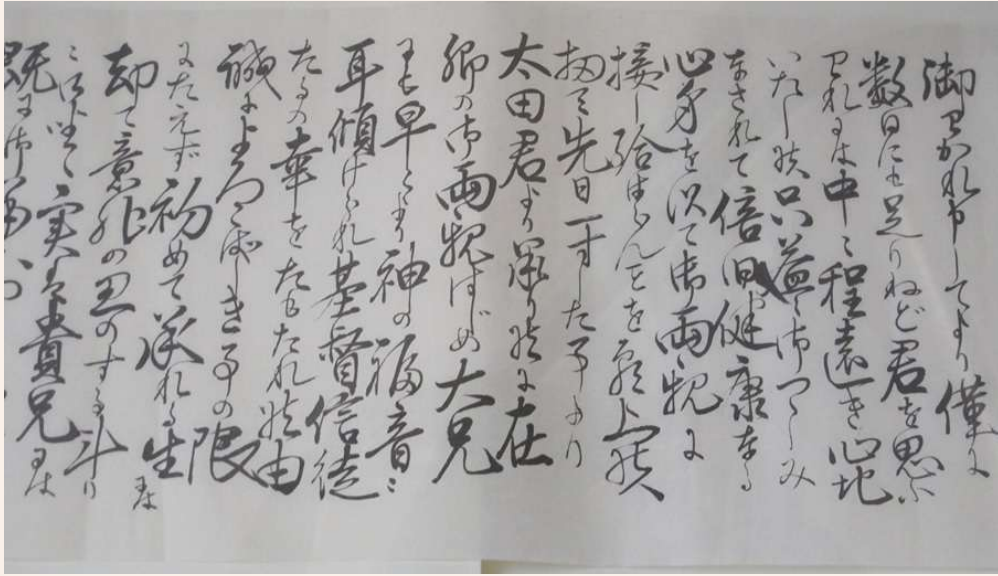 御わかれ申してより僅に
数日にも足りねど君を思ふ
われには中々程遠き心地
いたし候只益々御つゝしみ
なされて倍旧の健康なる
心身を以て御両親に
接し給はらんことを願上候
扨て先日一寸した事より
太田君より承り候に在
郷の御両親はじめ大兄
にも早くより神の福音に
耳傾けられ基督信徒
たるの幸をたもたれ候由
誠によろこばしき事の限
にたえず初めて承れる生には
却て意外の思のする斗り
に御坐候実は貴兄には
既に御